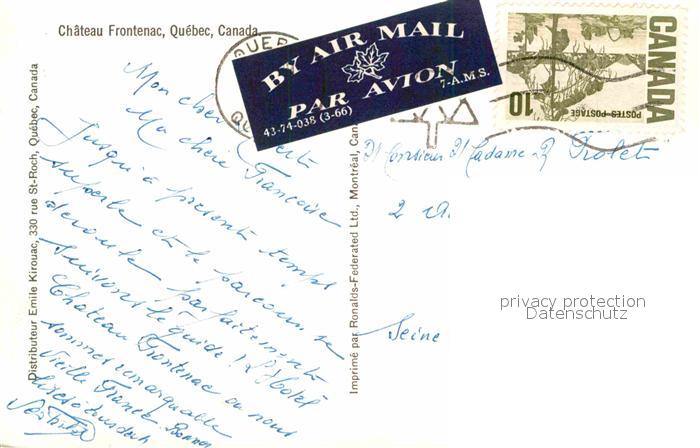 Château Frontenac, Québec, Canada.
BY AIR MAIL
PAR AVION
43-74-038 (3-66) 7-A.M.S.
CANADA
POSTES-POSTAGE
10
Distributeur Emile Kirouac, 330 rue St-Roch, Québec, Canada
Mon cher
Ma chère Françoise
Jusqu'à présent temps
superbe et le parcours se
déroule parfaitement
suivons le guide ! L'Hôtel
Château Frontenac où nous
sommes remarquable
Vieille France. Bonnes
Imprimé par Ronalds-Federated Ltd., Montréal, Can
Monsieur Madame Prolet
2 
Seine
privacy protection
Datenschutz